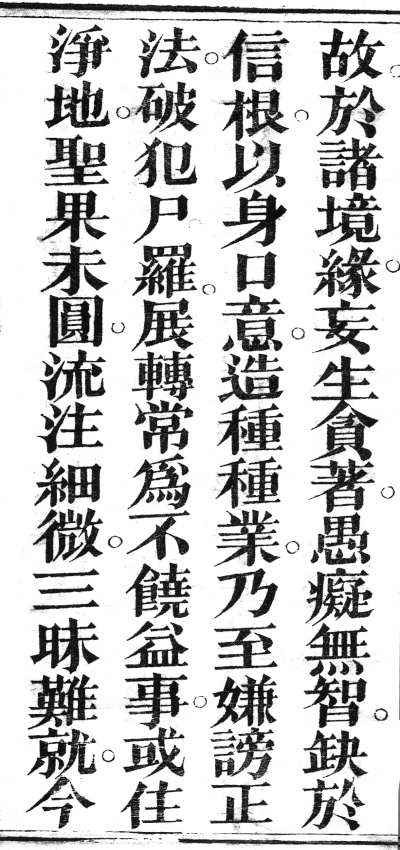 故。於諸境緣。妄生貪著。愚癡無智。缺於
信根。以身口意。造種種業。乃至嫌謗正
法。破犯尸羅。展轉常為不饒益事。或住
淨地。聖果未圓。流注細微。三昧難就。今